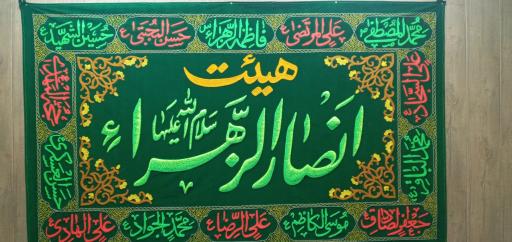 محمد المصطفی ص علی المرتضی ع فاطمة الزهراء س حسن المجتبی ع حسین الشهید ع
هیئت
انصار الزهراء
سلام الله علیها
علی السجاد ع
محمد الباقر ع
جعفر الصادق ع موسی الکاظم ع علی الرضا ع محمد الجواد ع علی الهادی ع
حسن العسکری ع